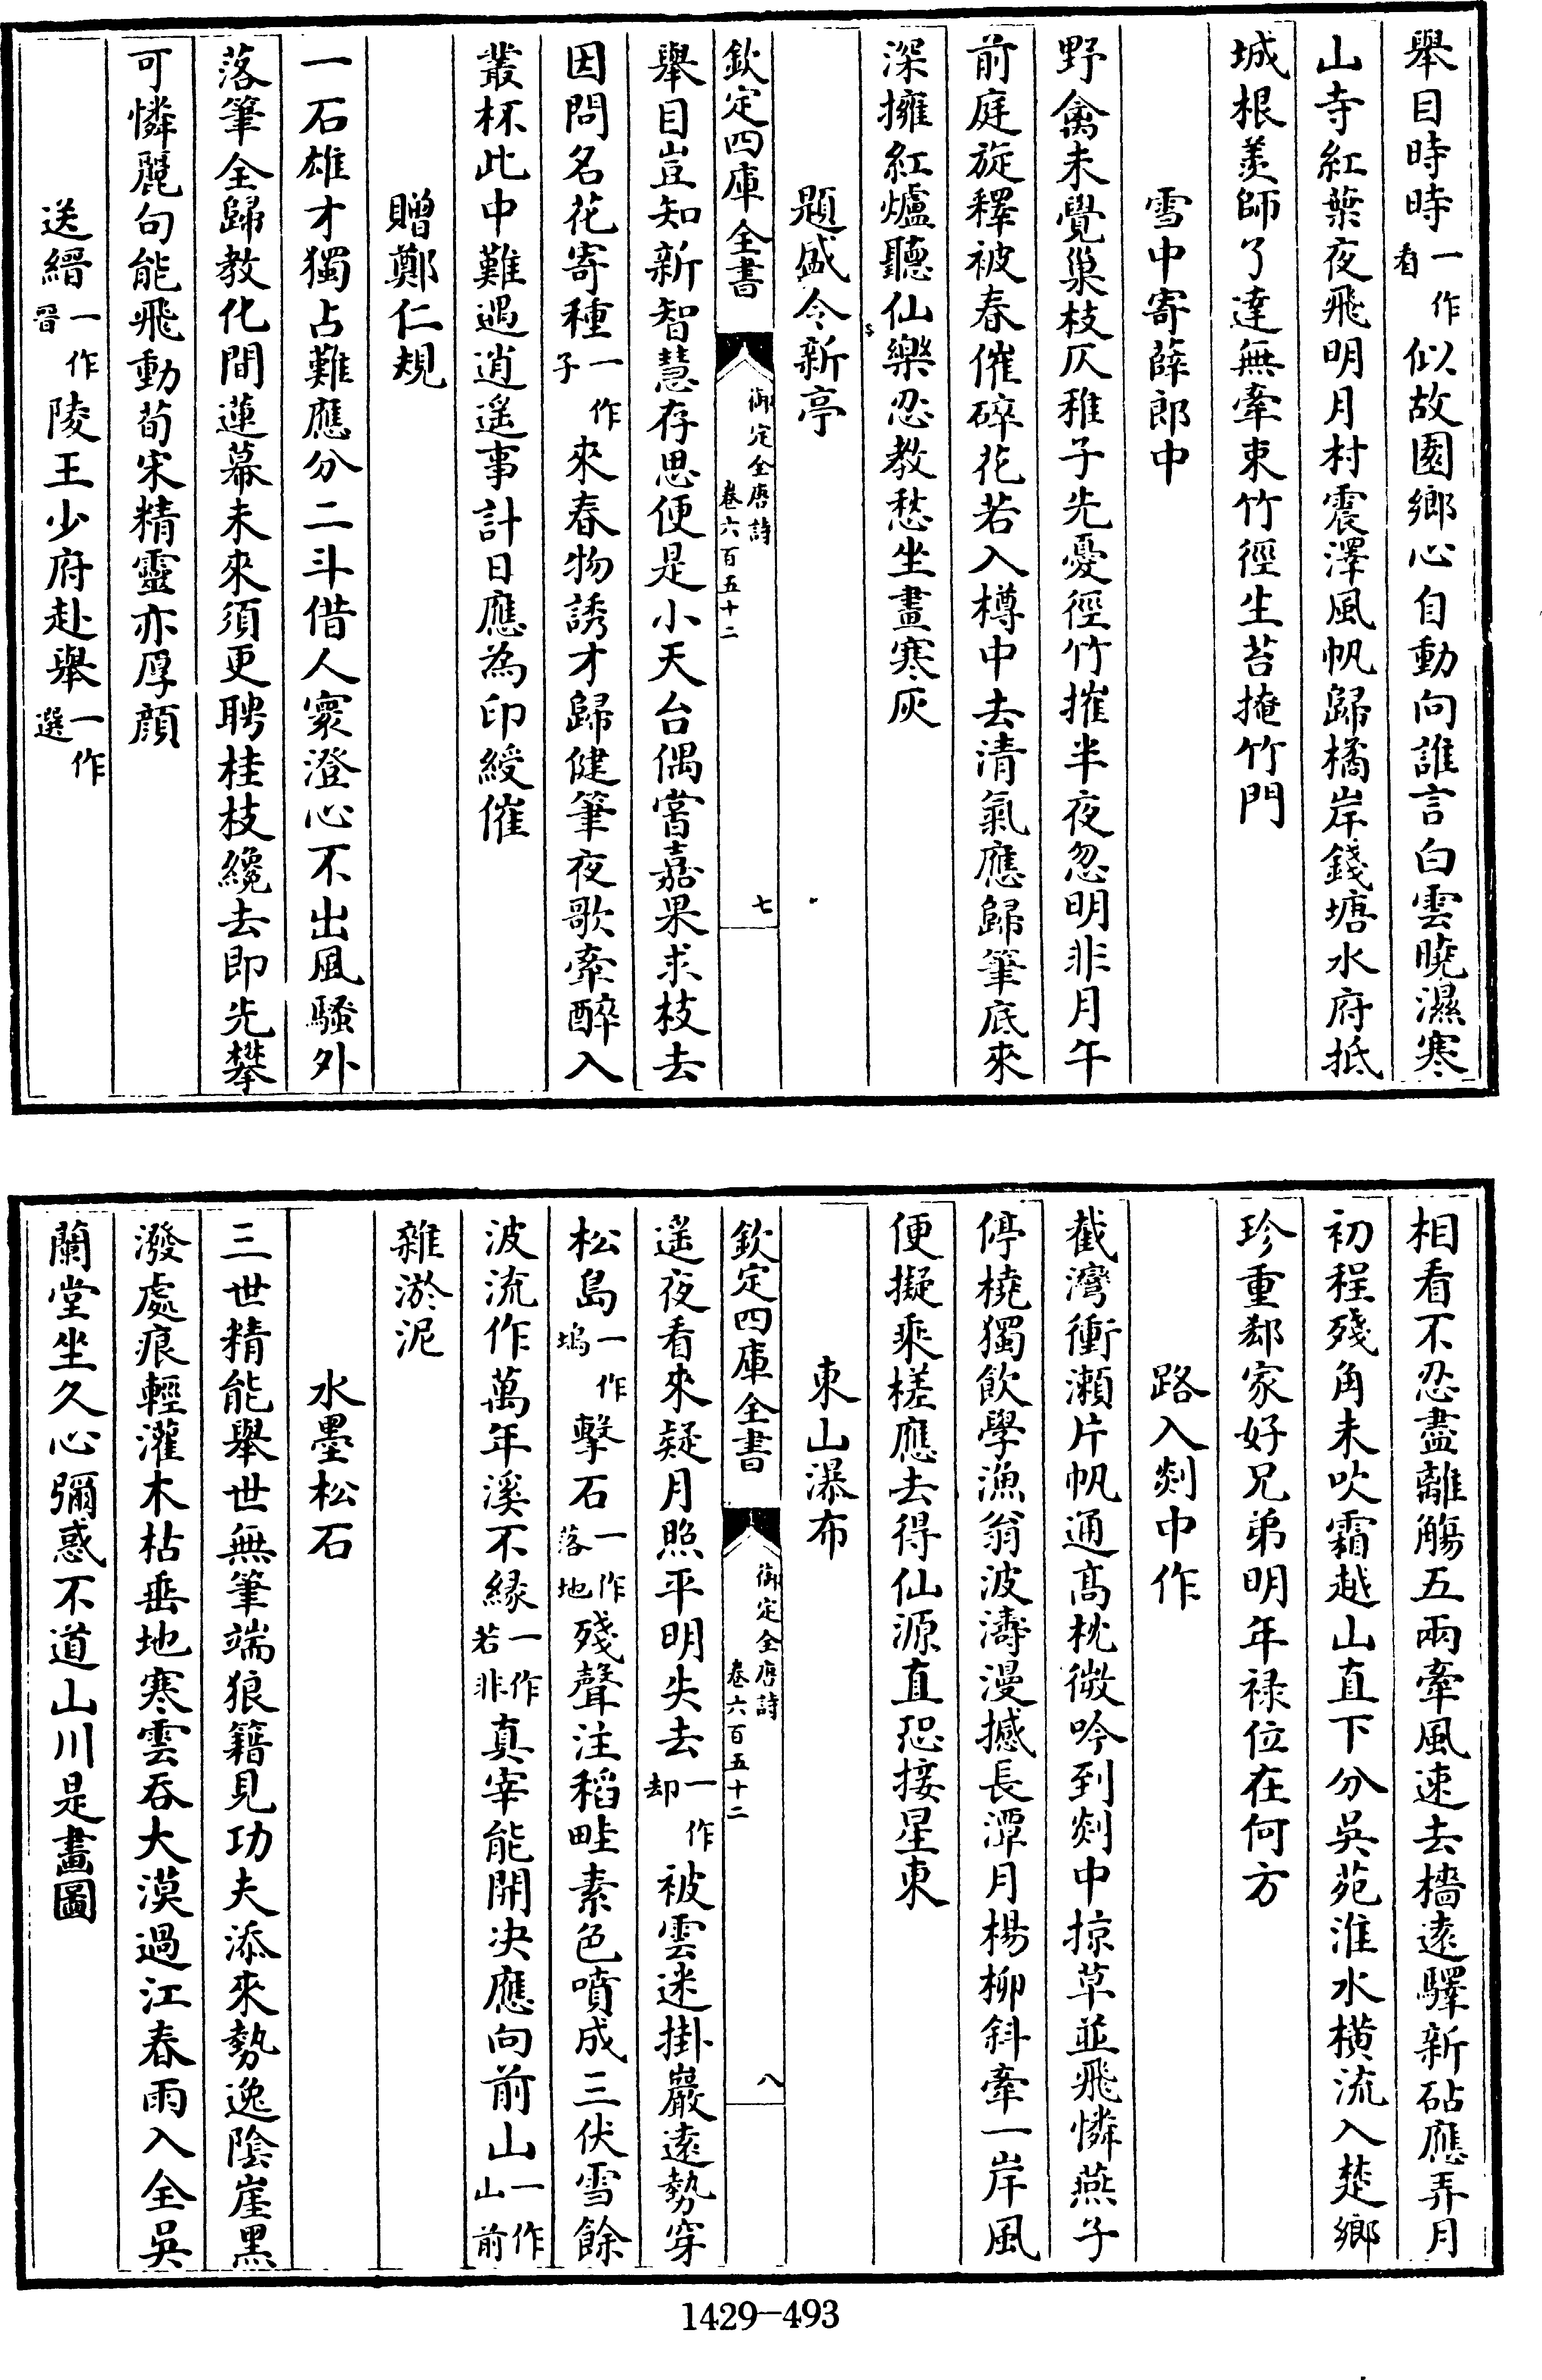 舉目時時一作看似故園鄉心自動向誰言白雲曉濕寒
山寺紅葉夜飛明月村震澤風帆歸橘岸錢塘水府抵
城根羨師了達無牽束竹徑生苔掩竹門
雪中寄薛郎中
野禽未覺巢枝仄稚子先憂徑竹摧半夜忽明非月午
前庭旋釋被春催碎花若入樽中去清氣應歸筆底來
深擁紅爐聽仙樂忍教愁坐畫寒灰
題盛令新亭
欽定四庫全書
御定全唐詩
卷六百五十二
七
舉目豈知新智慧存思便是小天台偶嘗嘉果求枝去
因問名花寄種一作子來春物誘才歸健筆夜歌牽醉入
叢杯此中難遇逍遥事計日應為印綬催
贈鄭仁規
一石雄才獨占難應分二斗借人寰澄心不出風騷外
落筆全歸教化間蓮幕未來須更聘桂枝纔去即先攀
可憐麗句能飛動荀宋精靈亦厚顏
送縉一作晉陵王少府赴舉一作選
相看不忍盡離觴五兩牽風速去檣遠驛新砧應弄月
初程殘角未吹霜越山直下分吳苑淮水橫流入楚鄉
珍重郄家好兄弟明年禄位在何方
路入剡中作
截灣衝瀨片帆通高枕微吟到剡中掠草並飛憐燕子
停橈獨飲學漁翁波濤漫撼長潭月楊柳斜牽一岸風
便擬乘槎應去得仙源直恐接星東
東山瀑布
欽定四庫全書
御定全唐詩
卷六百五十二
八
遥夜看來疑月照平明失去一作却被雲迷掛巖遠勢穿
松島一作塢擊石一作落地殘聲注稻畦素色噴成三伏雪餘
波流作萬年溪不緣一作若非真宰能開决應向前山一作山前
雜淤泥
水墨松石
三世精能舉世無筆端狼籍見功夫添來勢逸陰崖黑
潑處痕輕灌木枯垂地寒雲吞大漠過江春雨入全吳
蘭堂坐久心彌惑不道山川是畫圖
1429-493